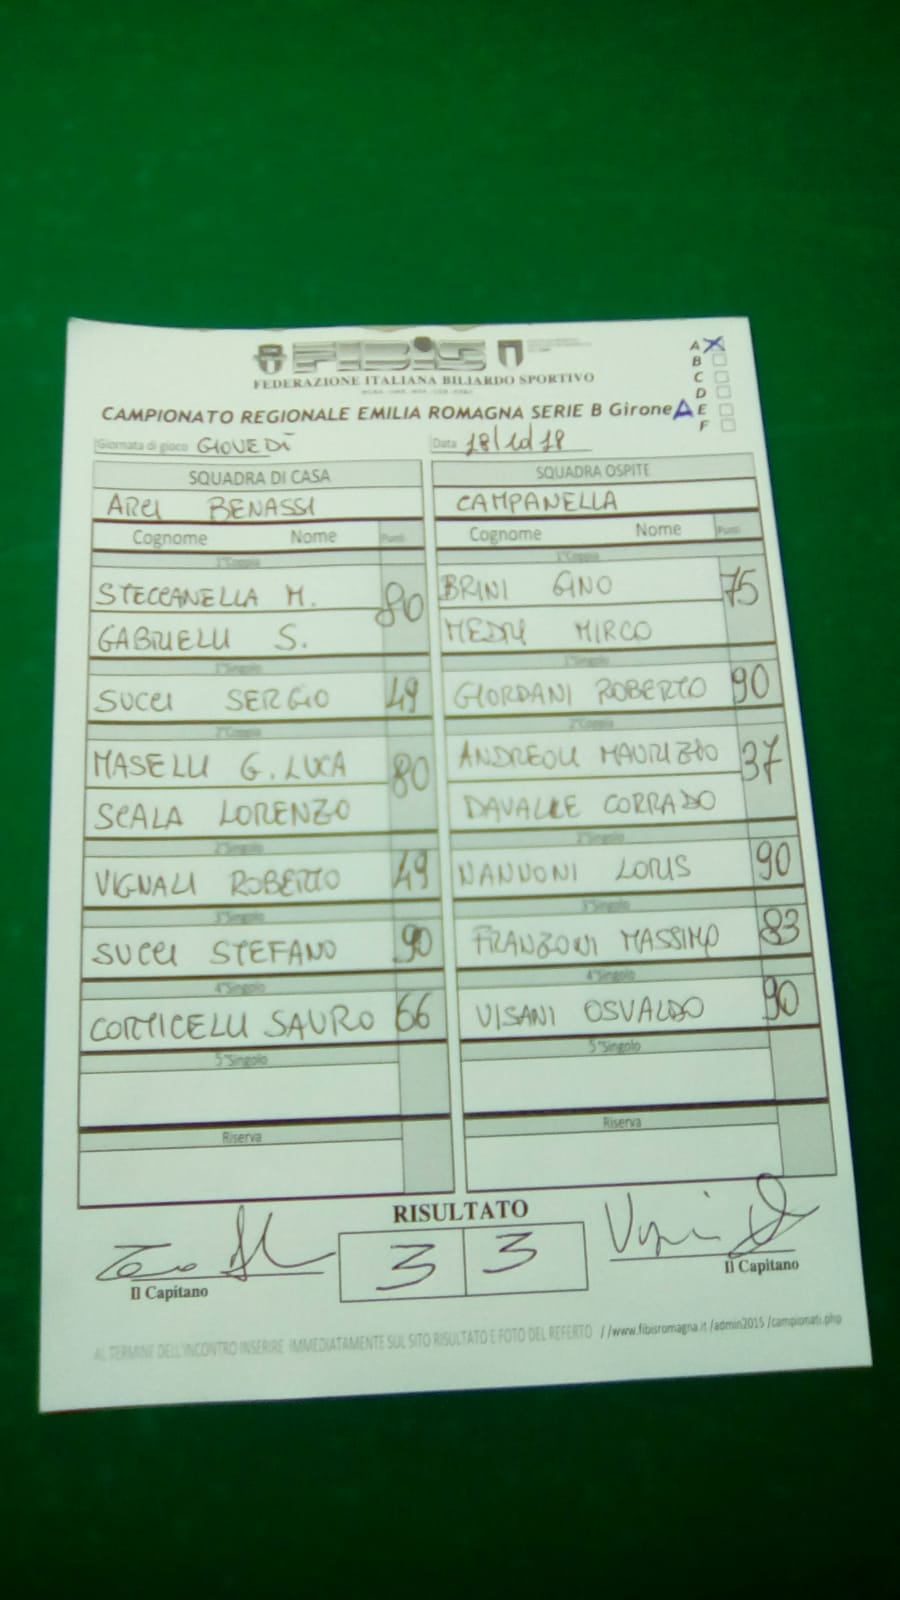 FIBiS
FEDERAZIONE ITALIANA BILIARDO SPORTIVO
CAMPIONATO REGIONALE EMILIA ROMAGNA SERIE B Girone A
A X
B
C
D
E
F
Giornata di gioco GIOVEDÌ
Data 18/10/18
SQUADRA DI CASA
ARCI BENASSI
Cognome Nome Punti
1°Coppia
STECCANELLA M. 80
GABRIELLI S.
1°Singolo
SUCCI SERGIO 49
2°Coppia
MASELLI G. LUCA 80
SCALA LORENZO
2°Singolo
VIGNALI ROBERTO 49
3°Singolo
SUCCI STEFANO 90
4°Singolo
CORTICELLI SAURO 66
5°Singolo
Riserva
SQUADRA OSPITE
CAMPANELLA
Cognome Nome Punti
1°Coppia
BRINI GINO 75
MEDRI MIRCO
1°Singolo
GIORDANI ROBERTO 90
2°Coppia
ANDREOLI MAURIZIO 37
DAVALLE CORRADO
2°Singolo
NANNONI LORIS 90
3°Singolo
FRANZONI MASSIMO 83
4°Singolo
VISANI OSVALDO 90
5°Singolo
Riserva
RISULTATO
3 3
Il Capitano
Il Capitano
AL TERMINE DELL'INCONTRO INSERIRE IMMEDIATAMENTE SUL SITO RISULTATO E FOTO DEL REFERTO //www.fibisromagna.it /admin2015 /campionati.php